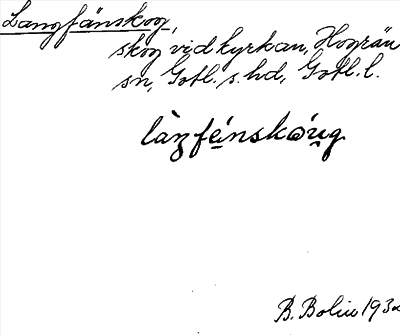 Langfänskog,
skog vid kyrkan, Hogrän
sn, Gotl. s. hd, Gotl. l.
làŋfénskóu̯g
B. Bolin